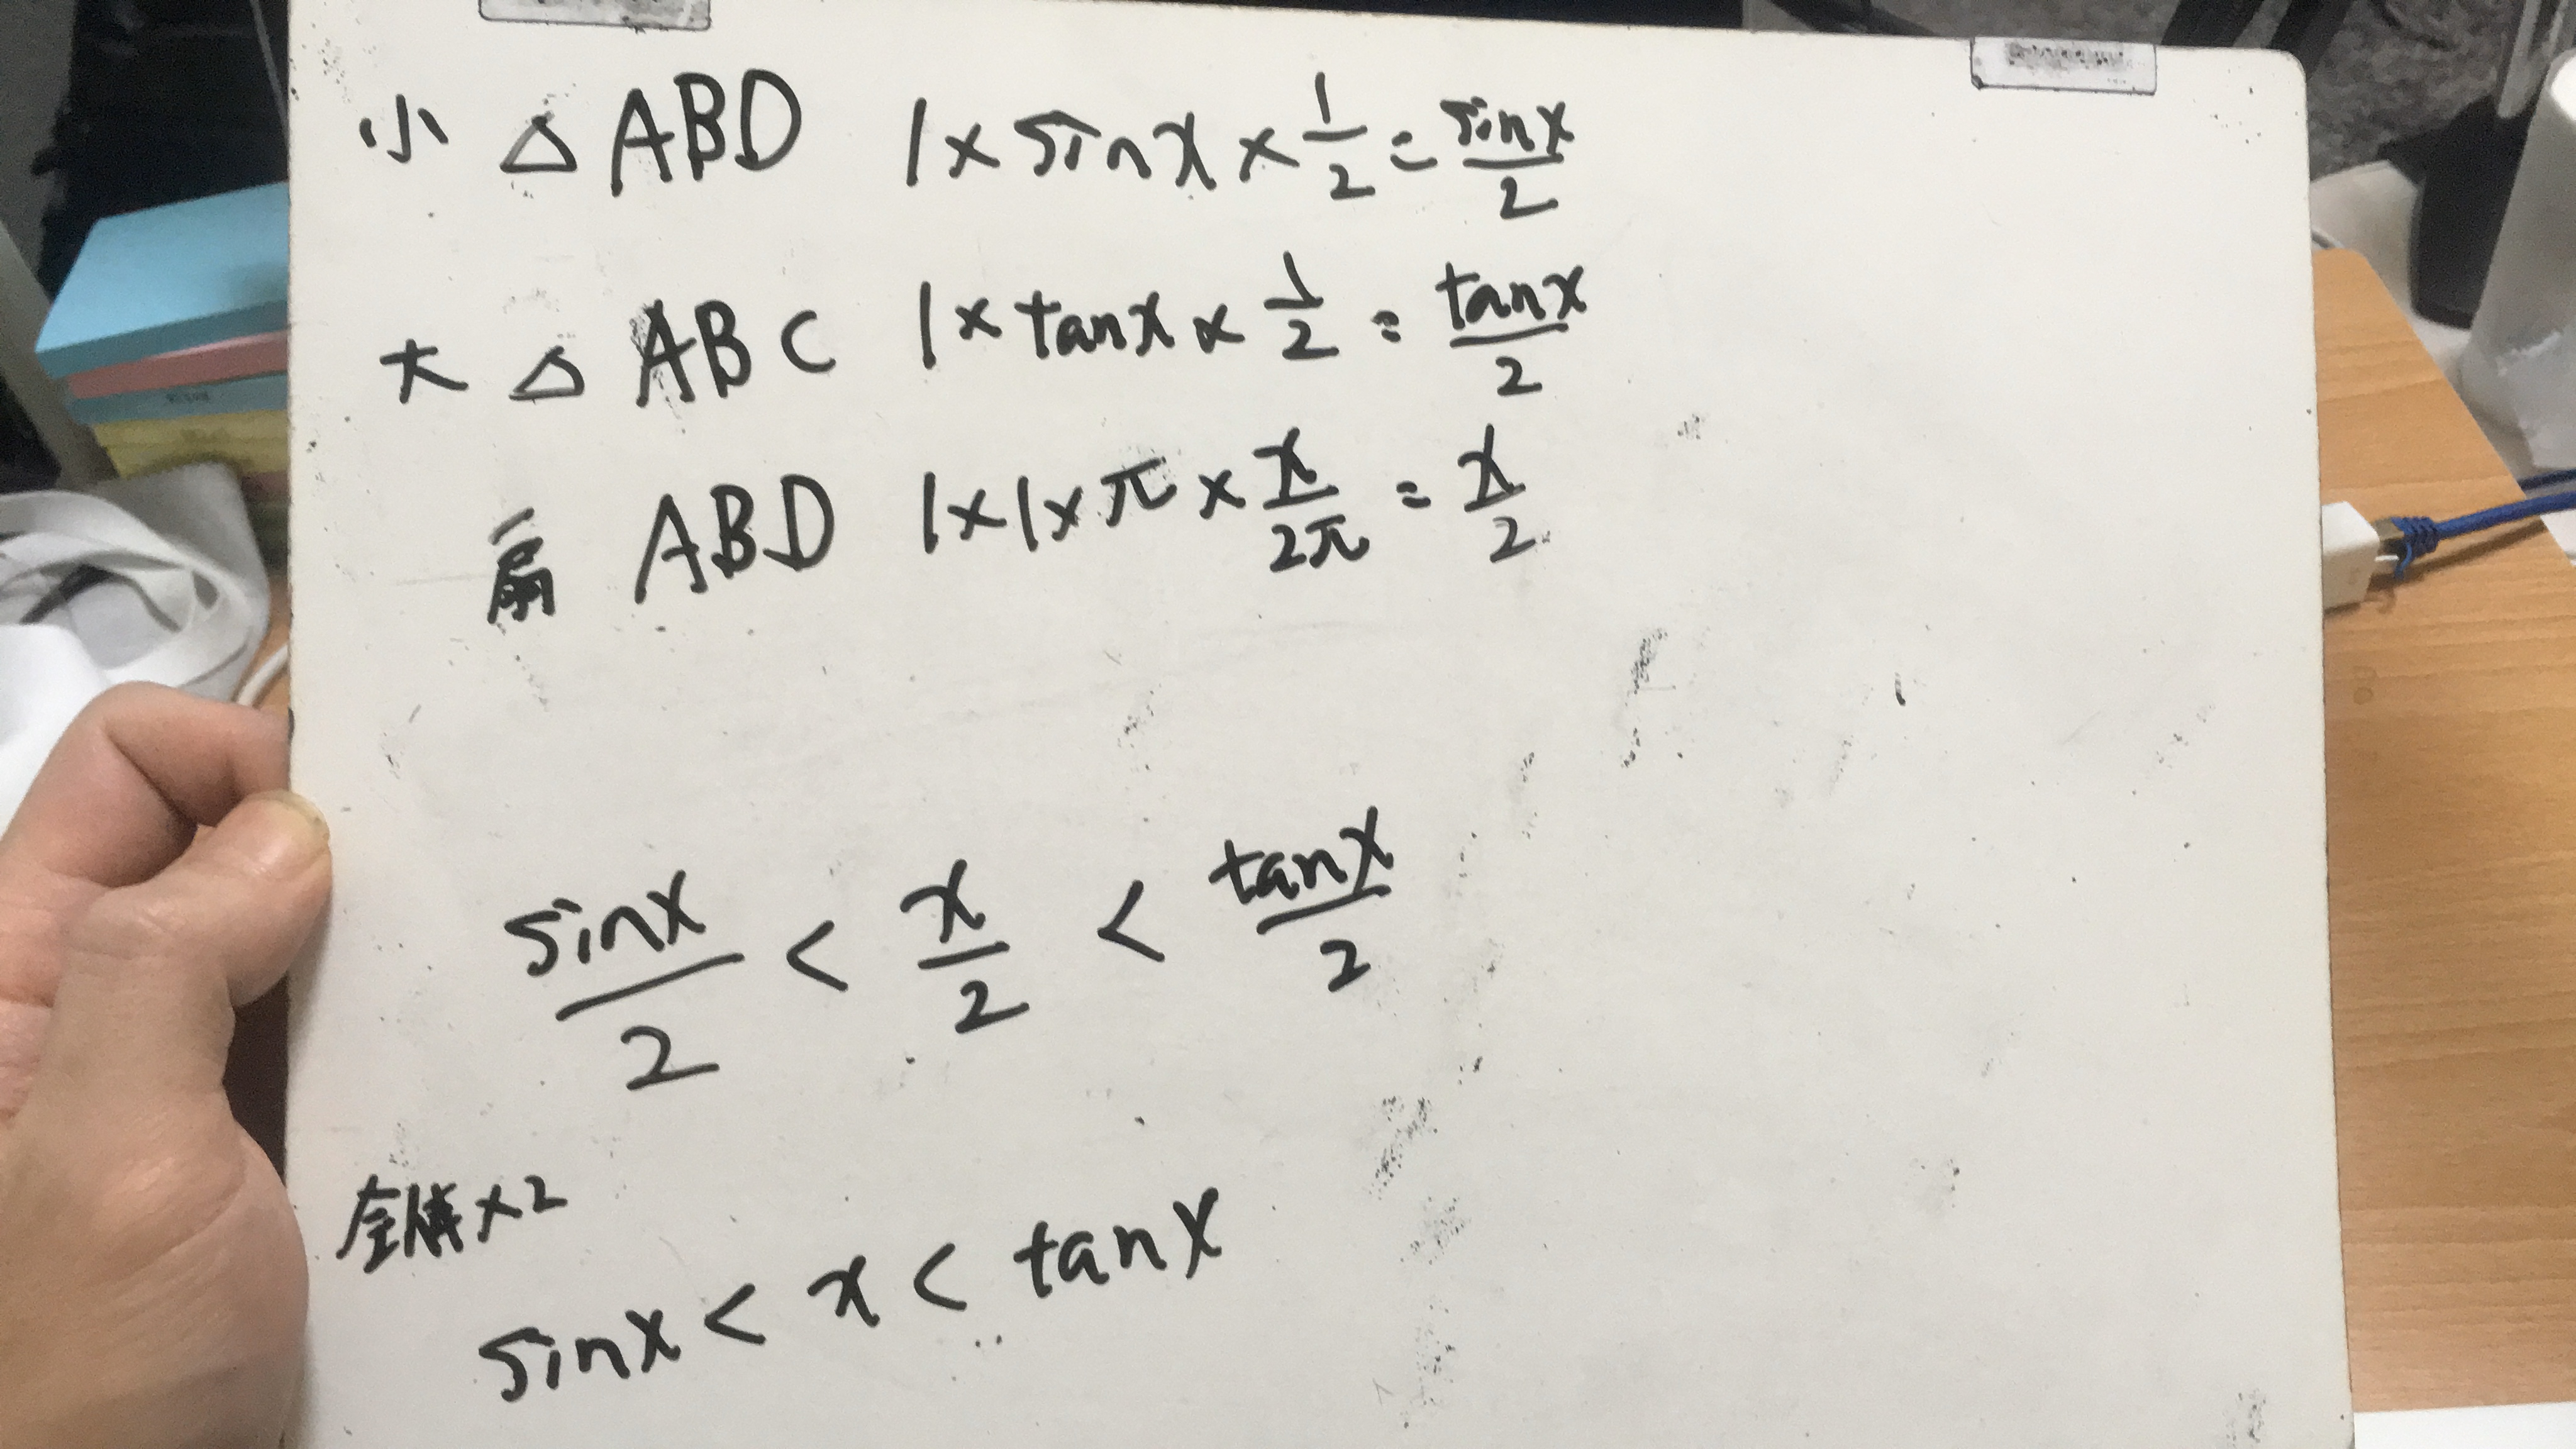 小 △ ABD 1 × sinx × 1/2 = sinx/2
大 △ ABC 1 × tanx × 1/2 = tanx/2
扇 ABD 1 × 1 × π × x/2π = x/2
sinx/2 < x/2 < tanx/2
全体 × 2
sinx < x < tanx